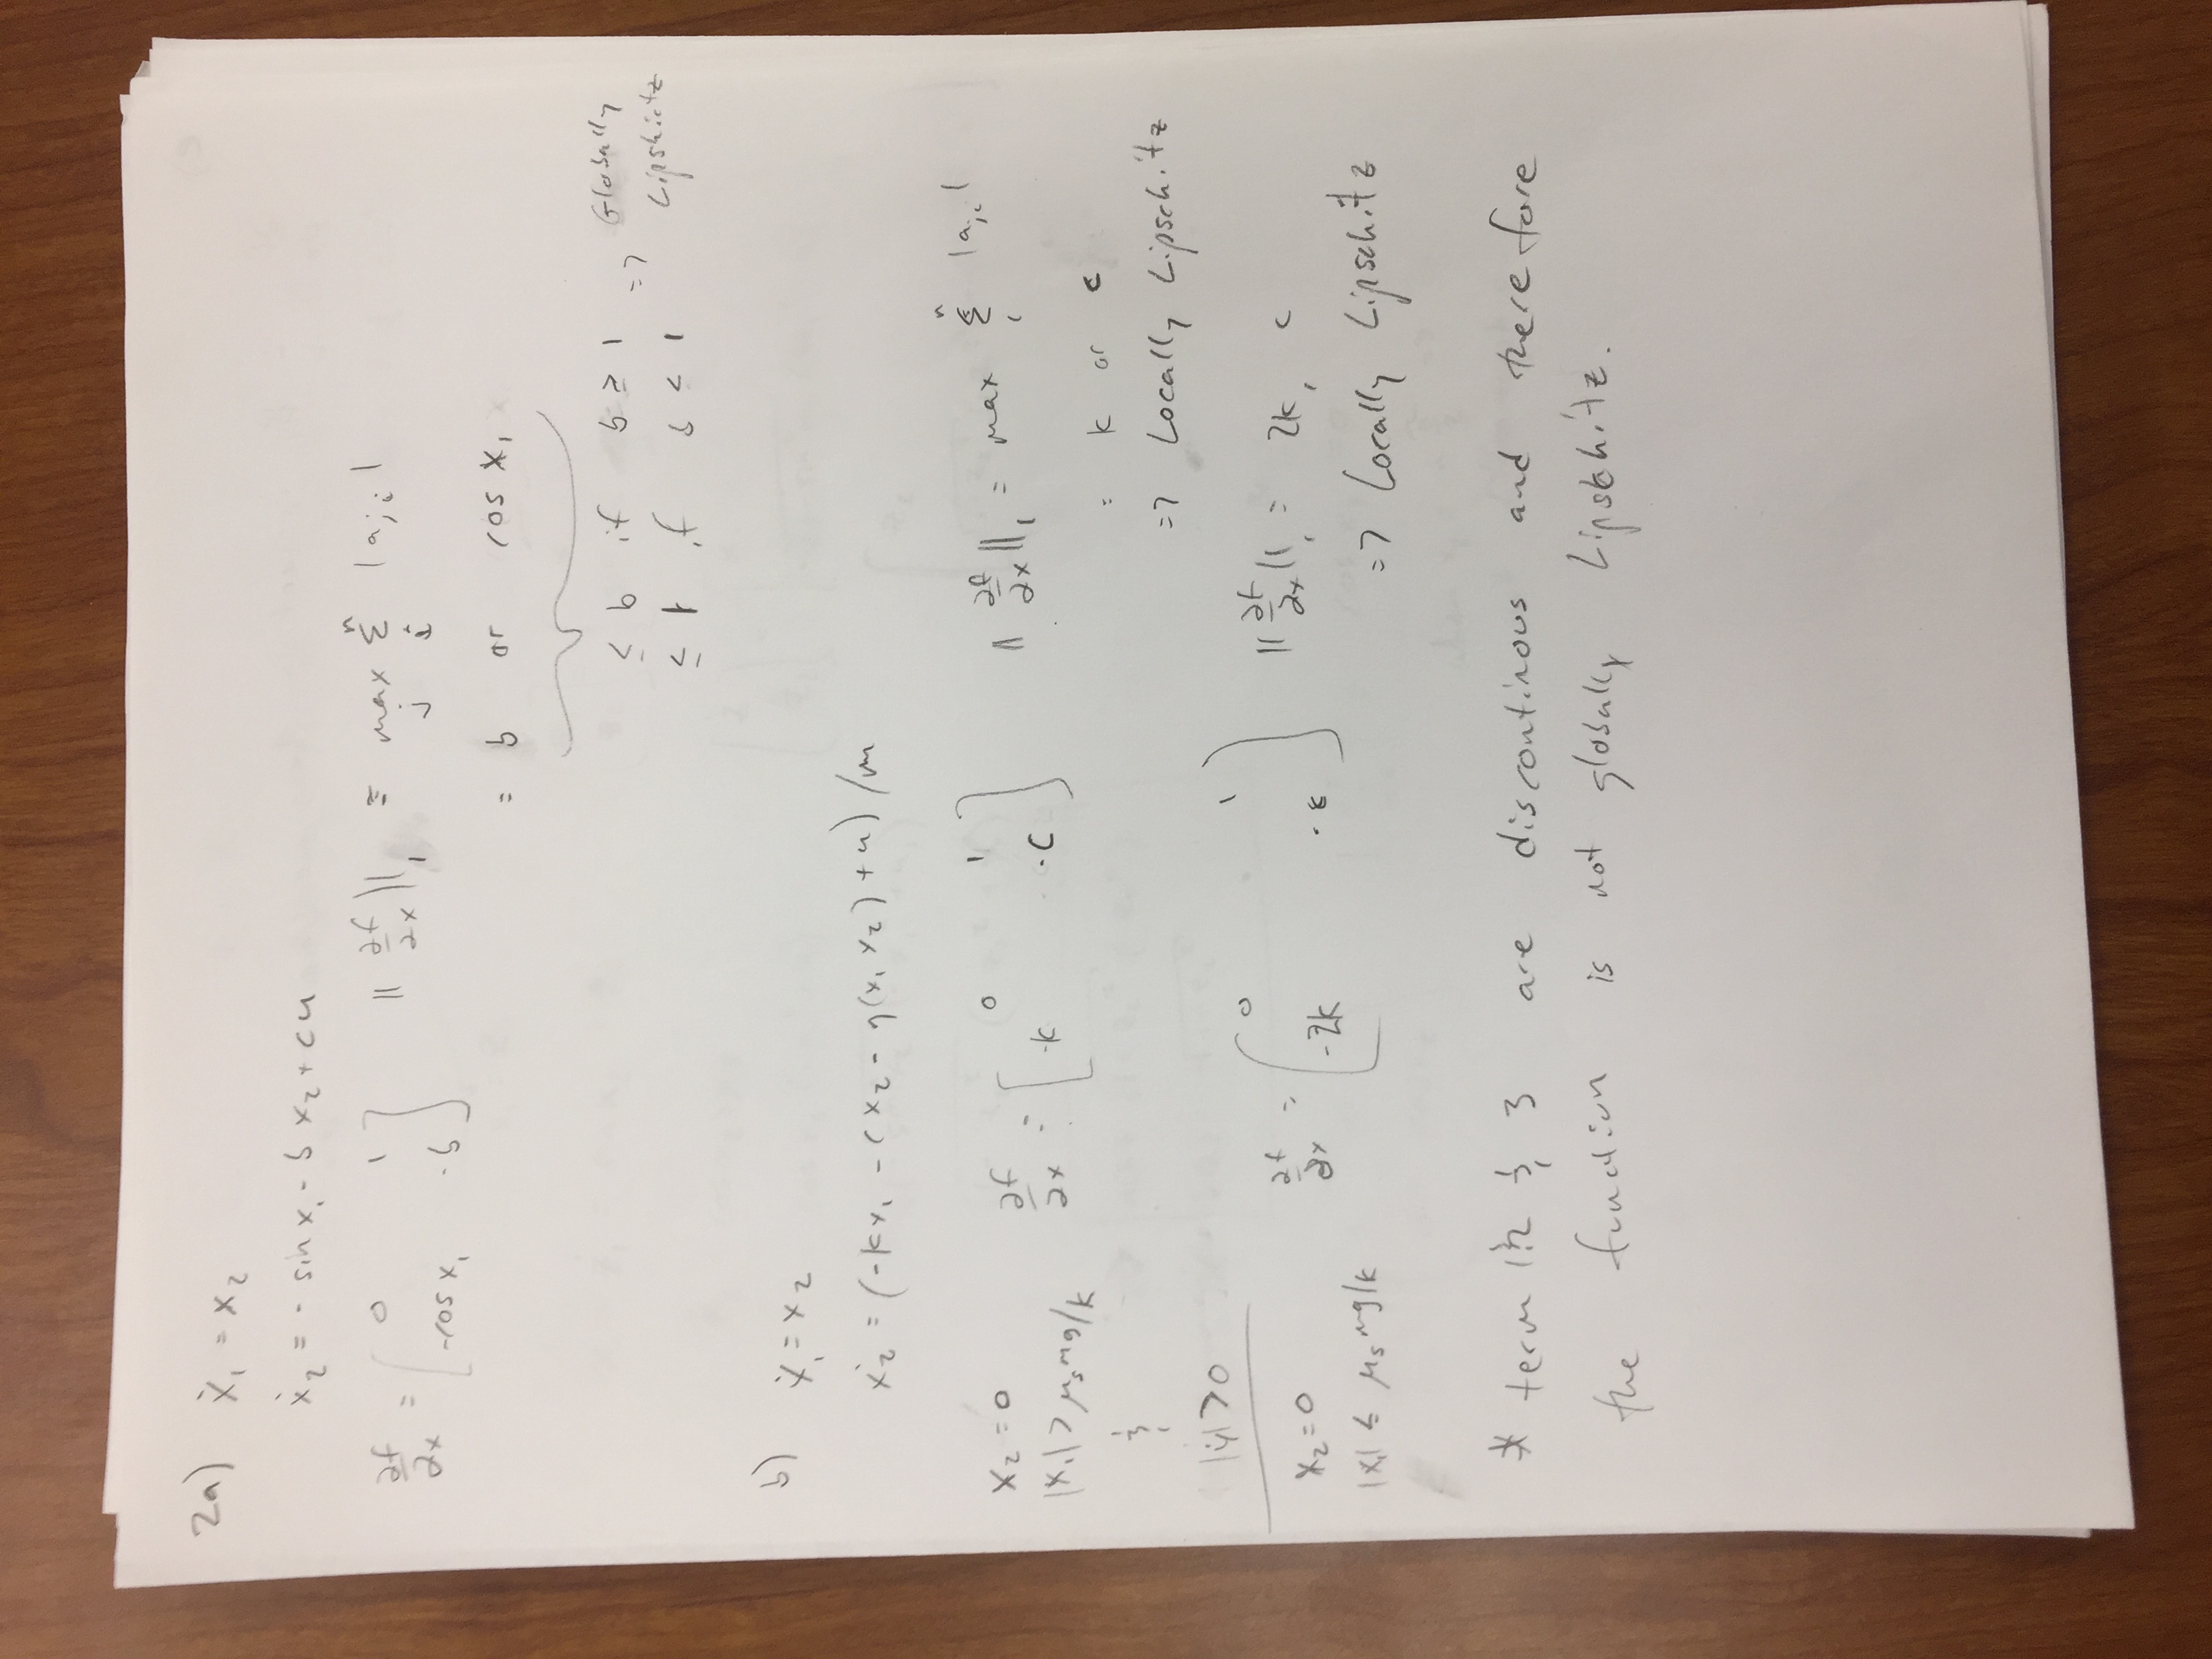 2a) ẋ₁ = x₂
ẋ₂ = - sin x₁ - b x₂ + cu
∂f/∂x = [ 0 1 ; -cos x₁ -b ] ‖ ∂f/∂x ‖₁ ≡ max_j Σ_i^n |a_ji|
= b or cos x₁
≤ b if b ≥ 1 => Globally
≤ 1 if b < 1 Lipshictz
b) ẋ₁ = x₂
ẋ₂ = (-kx₁ - cx₂ - η(x₁ x₂) + u) /m
x₂ = 0
|x₁| > μₛmg/k
&
|ẏ| > 0
∂f/∂x = [ 0 1 ; -k -c ] ‖ ∂f/∂x ‖₁ = max Σ_i^n |a_ji|
= k or c
=> Locally Lipschitz
x₂ = 0
|x₁| ≤ μₛmg/k
∂f/∂x = [ 0 1 ; -2k -c ] ‖ ∂f/∂x ‖₁ = 2k, c
=> Locally Lipschitz
* term 1&2 & 3 are discontinous and therefore
the function is not globally Lipschitz.